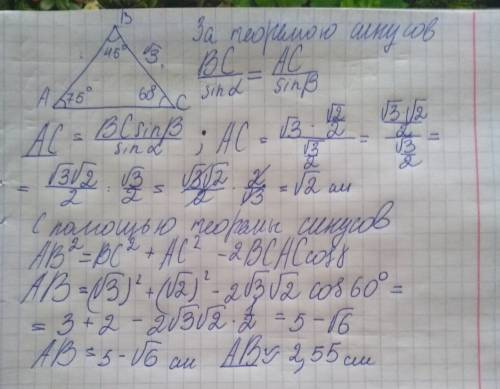 B
45°
√3
A 75° 60° C
За теоремою синусов
BC/sinα = AC/sinβ
AC = BC sinβ/sinα ; AC = (√3 · √2/2)/(√3/2) = (√3·√2/2)/(√3/2) =
= √3√2/2 : √3/2 = √3√2/2 · 2/√3 = √2 см
С помощью теоремы синусов
AB² = BC² + AC² - 2BCAC cosγ
AB = (√3)² + (√2)² - 2√3√2 cos 60° =
= 3 + 2 - 2√3√2 · 1/2 = 5 - √6
AB = 5 - √6 см AB ≈ 2,55 см